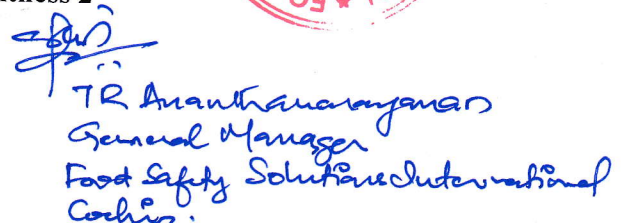 TR Ananthanarayanan
General Manager
Food Safety Solutions International
Cochin.